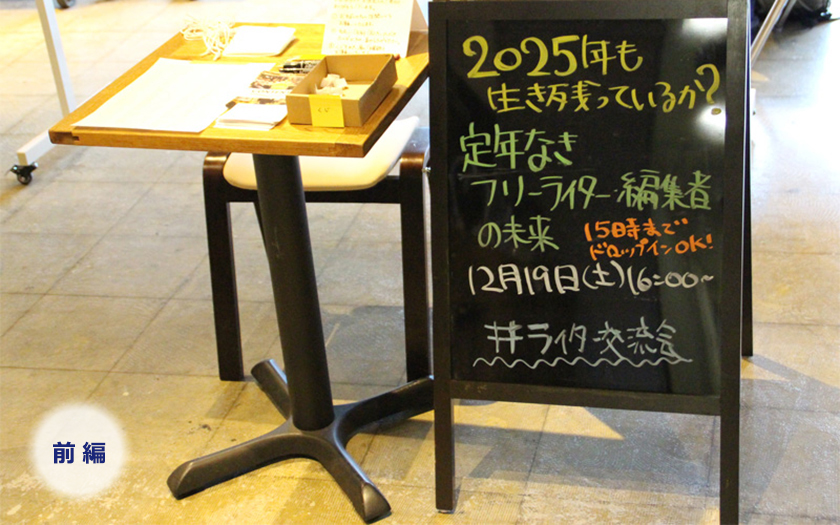 2025年も
生き残っているか?
定年なき
フリーライター・編集者
の未来
15時まで
ドロップインOK!
12月19日(土)16:00~
#ライター交流会
前編